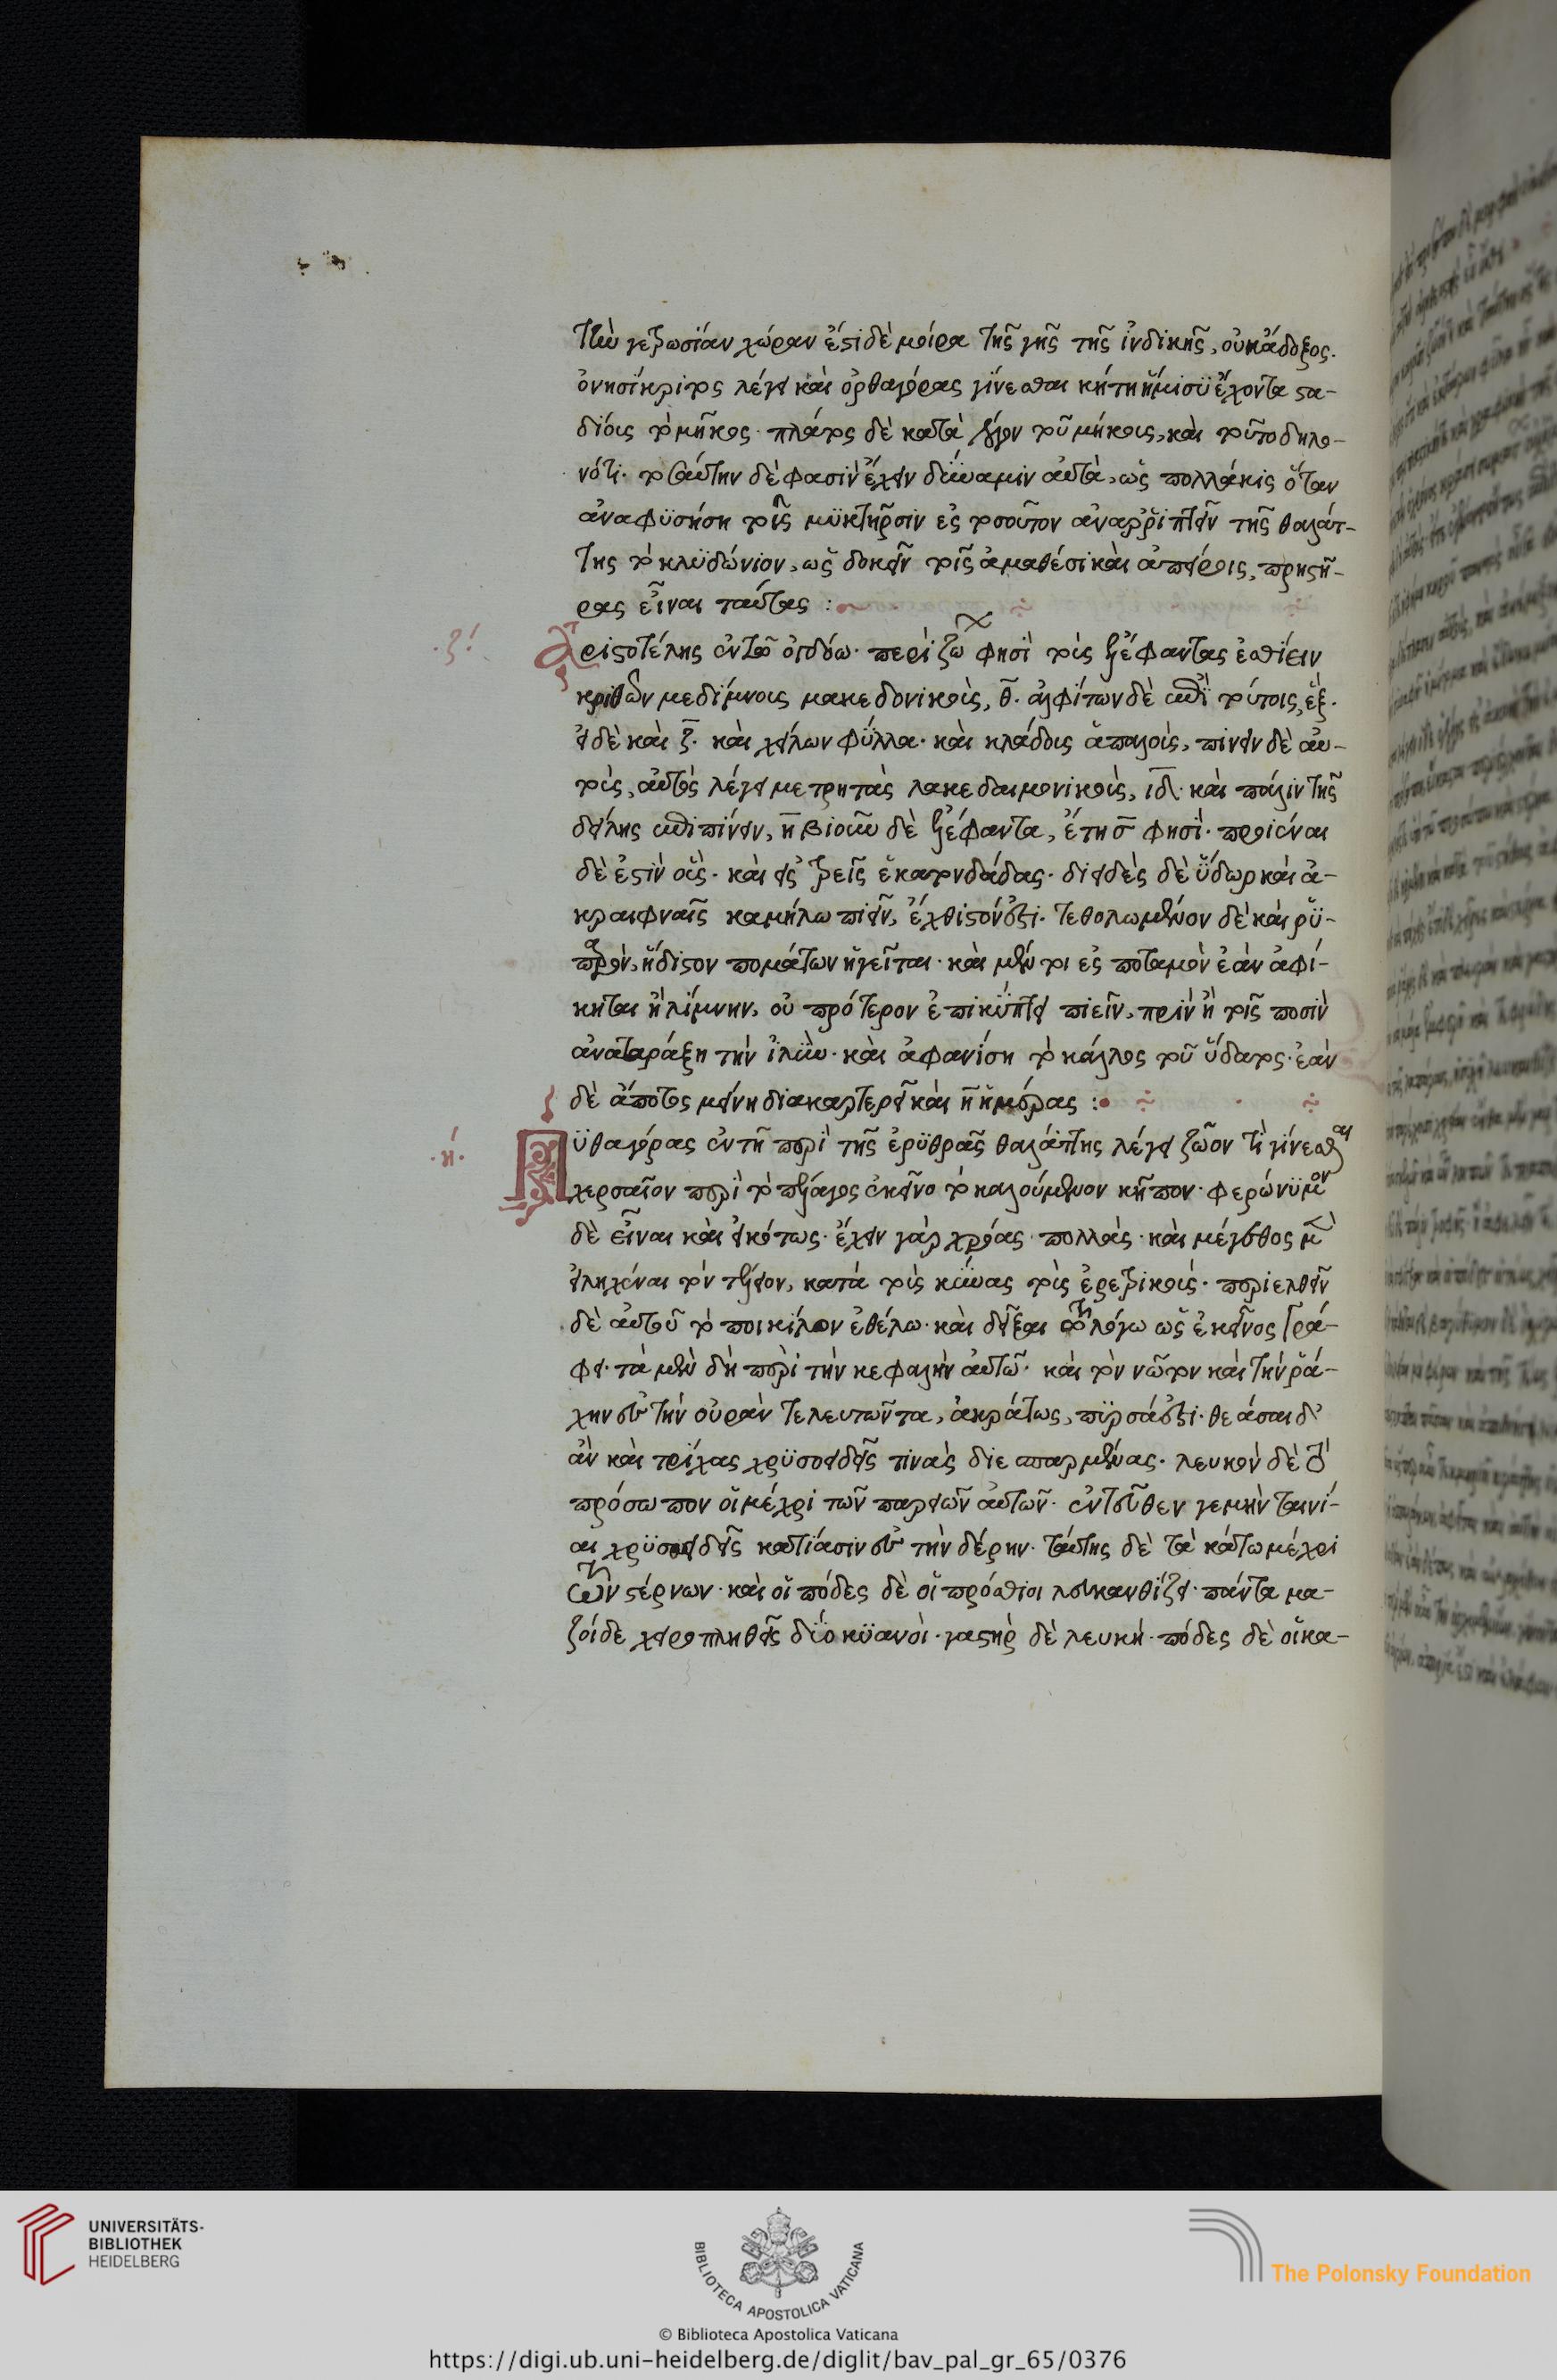 τὴν γεδρωσίαν χώραν ἔστι δὲ μοίρα τῆς γῆς τῆς ἰνδικῆς, οὐκ ἄδοξος.
ὀνησίκριτος λέγει καὶ ὀρθαγόρας γίνεσθαι κήτη ἥμισϋ ἔχοντα στα-
δίοις τὸ μῆκος· πλάτος δὲ κατὰ λόγον τοῦ μήκους, καὶ τοῦτο δηλο-
νότι. τοσαύτην δὲ φασὶν ἔχειν δύναμιν αὐτὰ, ὡς πολλάκις ὅταν
ἀναφϋσήση τοῖς μϋκτῆρσιν ἐς τοσοῦτον ἀναρρίπτειν τῆς θαλάτ-
της τὸ κλϋδώνιον, ὡς δοκεῖν τοῖς ἀμαθέσι καὶ ἀπείροις, πρηστῆ-
ρας εἶναι ταύτας :
·ζ· ἀριστοτέλης ἐν τῶ ὀγδόω· περὶ ζώ φησὶ τοὺς ἐλέφαντας ἐσθίειν
κριθῶν μεδίμνους μακεδονικοὺς, θ. ἀλφίτων δὲ ἐπὶ τούτοις, ἕξ.
εἰ δὲ καὶ ζ. καὶ χείλων φύλλα· καὶ κλάδους ἁπαλοὺς, πίνειν δὲ αὐ-
τοὺς, αὐτὸς λέγει μετρητὰς λακεδαιμονικοὺς, ιδ. καὶ πάλιν τῆς
δείλης ἐπιπίνειν, η βιοῦν δὲ ἐλέφαντα, ἔτη σ φησὶ· προϊέναι
δὲ ἐστὶν οὓς· καὶ εἰς τρεῖς ἑκατονδάδας· διειδὲς δὲ ὕδωρ καὶ ἀ-
κραιφναῖς καμήλω πιεῖν, ἔχθιστόν ἐστι· τεθολωμένον δὲ καὶ ῥϋ-
παρὸν, ἥδιστον πομάτων ἡγεῖται· καὶ μέν τοι ἐς ποταμὸν ἐὰν ἀφί-
κηται ἢ λίμνην, οὐ πρότερον ἐπικύπτει πιεῖν, πρὶν ἢ τοῖς ποσὶν
ἀναταράξη τὴν ἰλὺν· καὶ ἀφανίση τὸ κάλλος τοῦ ὕδατος· ἐὰν
δὲ ἄποτος μείνη διακαρτερεῖ καὶ η ἡμέρας :
·η· Πϋθαγόρας ἐν τῆ περὶ τῆς ἐρϋθρᾶς θαλάττης λέγει ζῶον τὶ γίνεσθαι
χερσαῖον περὶ τὸ πέλαγος ἐκεῖνο τὸ καλούμενον κῆπον· φερώνϋμον
δὲ εἶναι καὶ εἰκότως· ἔχειν γὰρ χρόας πολλὰς· καὶ μέγεθος μὲν
εἰληχέναι τὸν τέλειον, κατὰ τοὺς κύνας τοὺς ἐρετρικοὺς· περιελθεῖν
δὲ αὐτοῦ τὸ ποικίλον ἐθέλω· καὶ δεῖξαι τῶ λόγω ὡς ἐκεῖνος γρά-
φει· τὰ μὲν δὴ περὶ τὴν κεφαλὴν αὐτῶ· καὶ τὸν νῶτον καὶ τὴν ῥά-
χην ἐς τὴν οὐρὰν τελευτῶντα, ἀκράτως, πϋρσά ἐστι· θεάσαι δ'
ἂν καὶ τρίχας χρϋσοειδεῖς τινὰς διεσπαρμένας· λευκὸν δὲ τὸ
πρόσωπον οἱ μέχρι τῶν παρειῶν αὐτῶν· ἐντεῦθεν γεμὴν ταινί-
αι χρϋσοειδεῖς κατίασιν ἐς τὴν δέρην· ταύτης δὲ τὰ κάτω μέχρι
τῶν στέρνων· καὶ οἱ πόδες δὲ οἱ πρόσθιοι λευκανθίζει· πάντα μα-
ζοὶ δε χειροπληθεῖς δϋὁ κϋανοὶ· γαστὴρ δὲ λευκή· πόδες δὲ οἱ κα-
UNIVERSITÄTS-
BIBLIOTHEK
HEIDELBERG
BIBLIOTECA APOSTOLICA VATICANA
The Polonsky Foundation
© Biblioteca Apostolica Vaticana
https://digi.ub.uni-heidelberg.de/diglit/bav_pal_gr_65/0376